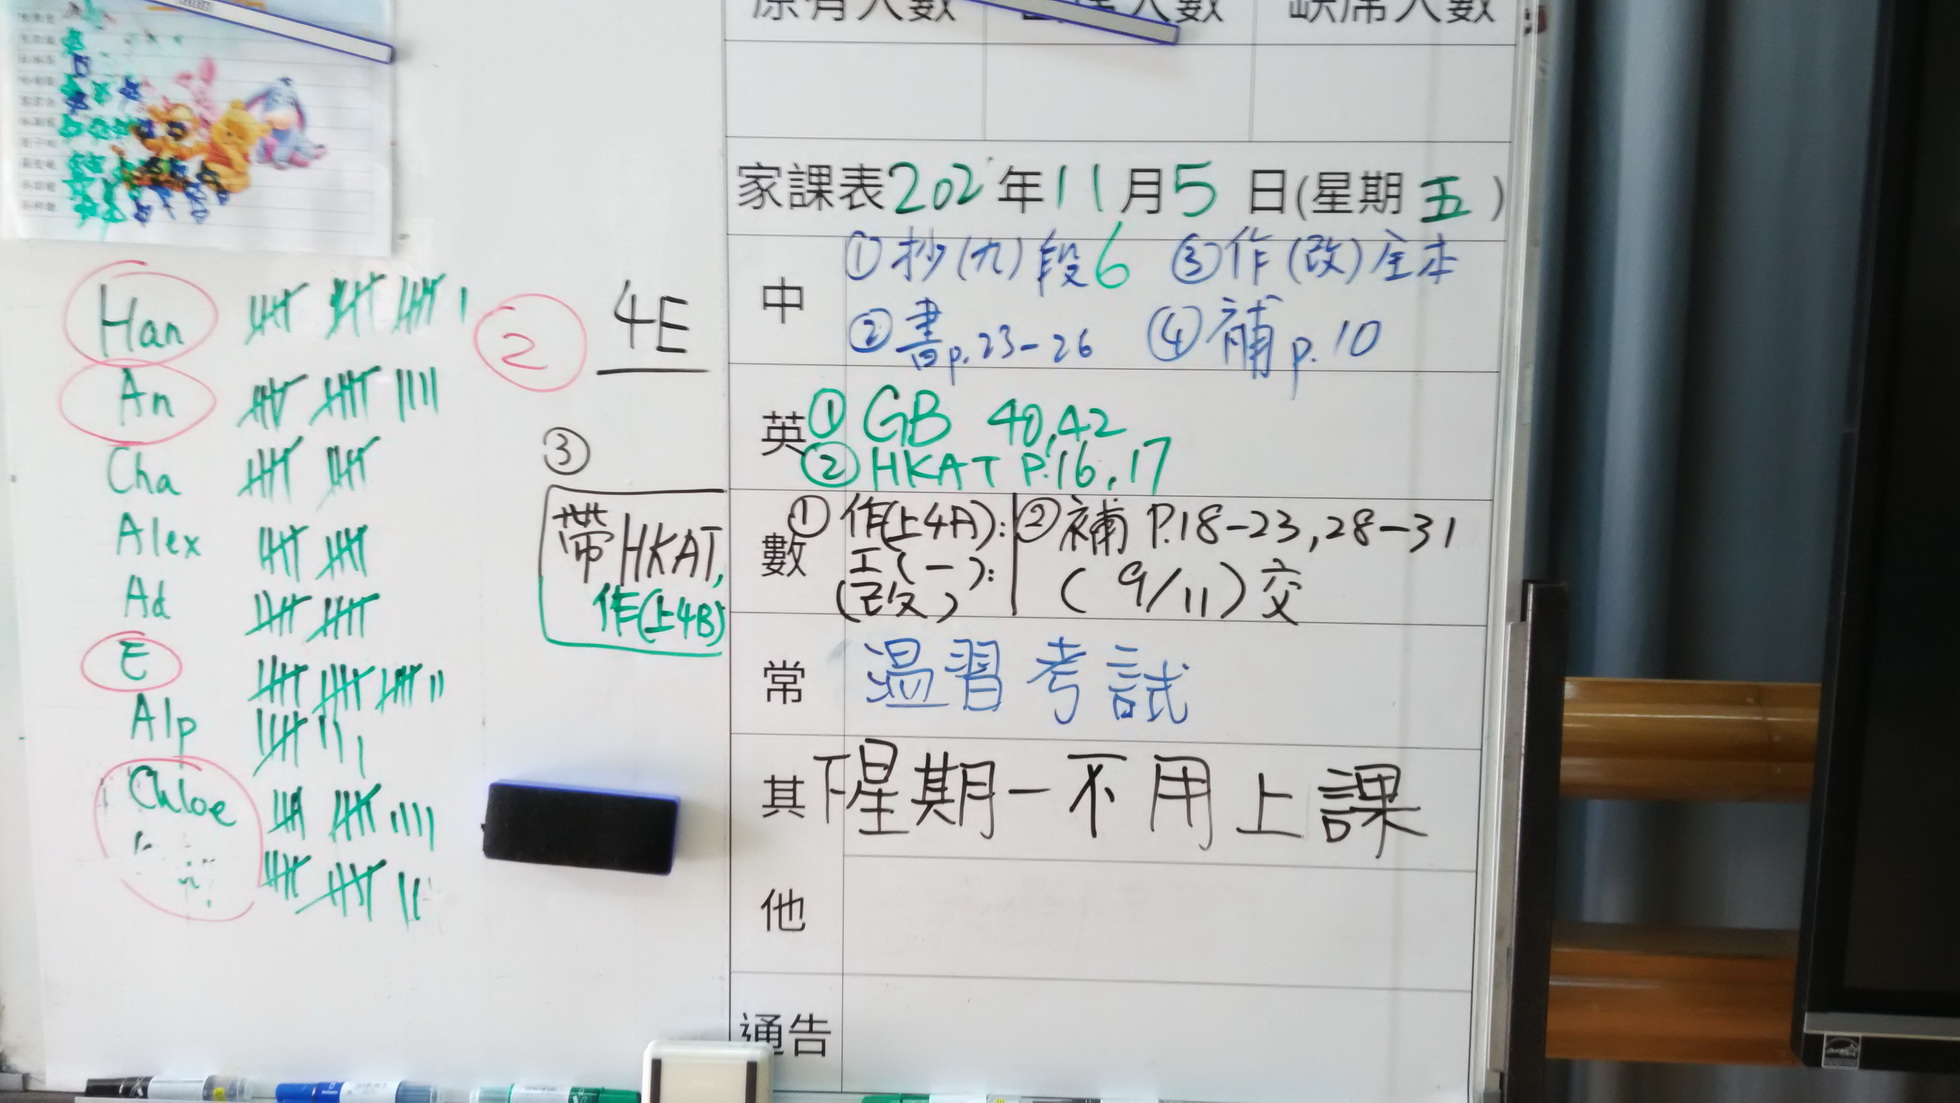 原有人數 人數 缺席人數
家課表202 年11月5日(星期五)
中
①抄(九)段6 ③作(改)全本
②書p.23-26 ④補p.10
英
①GB 40,42
②HKAT P.16,17
數
①作(上4A):
工(一):
(改)
②補P.18-23,28-31
(9/11)交
常
溫習考試
其他
下星期一不用上課
通告
4E
②
③
帶HKAT,
作(上4B)
Han
An
Cha
Alex
Ad
E
Alp
Chloe